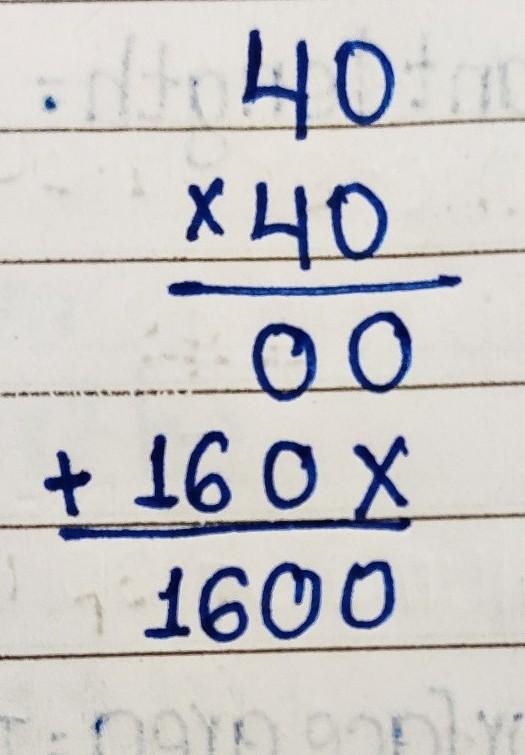 40
×40
00
+ 160x
1600